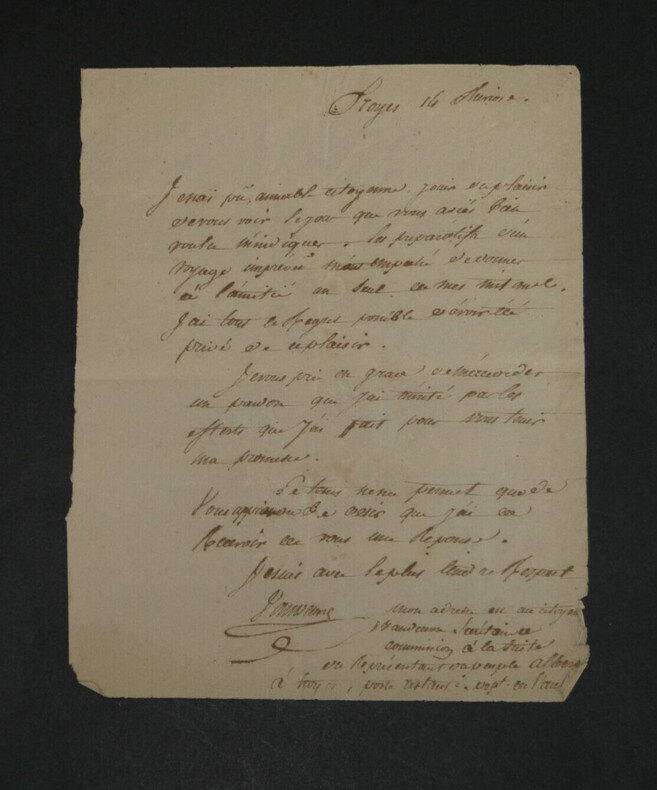 Troyes 14
Je nai pû, aimable citoyenne, jouir du plaisir
de vous voir le jour que vous aviés bien
voulu mindiquer. les preparatifs d'un
voyage imprevû mont empeché de donner
à l'amitié un seul de mes
J'ai tout le Regret possible d'avoir été
privé de ce plaisir.
Je vous prie en grace de m'accorder
un pardon que j'ai mérité par les
efforts que j'ai fait pour vous tenir
ma promesse.
Le tems ne me permet que de
vous apprendre le desir que j'ai de
Recevoir de vous une Reponse.
Je suis avec le plus tendre Respect
mon adresse est au citoyen
Secretaire de
commission à la suite
du Représentant du peuple
à Troyes, poste restante. dept de l'aube